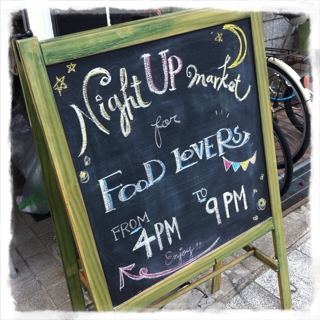 Night UP market
for
FOOD LOVERS
FROM 4PM TO 9PM
Enjoy